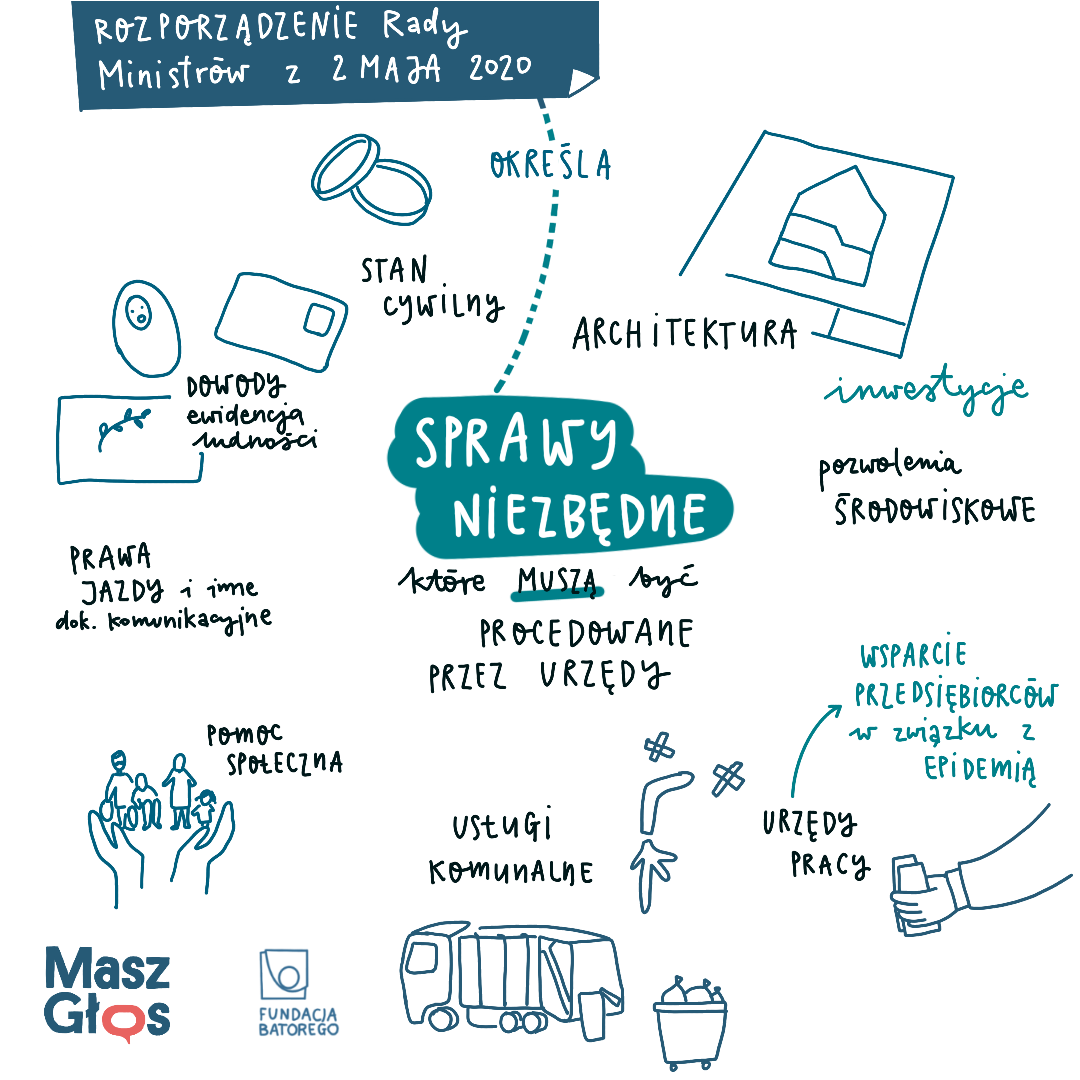 ROZPORZĄDZENIE Rady
Ministrów z 2 MAJA 2020
OKREŚLA
STAN
cywilny
ARCHITEKTURA
inwestycje
pozwolenia
ŚRODOWISKOWE
DOWODY
ewidencja
ludności
SPRAWY
NIEZBĘDNE
które MUSZĄ być
PROCEDOWANE
PRZEZ URZĘDY
PRAWA
JAZDY i inne
dok. komunikacyjne
POMOC
SPOŁECZNA
USŁUGI
KOMUNALNE
WSPARCIE
PRZEDSIĘBIORCÓW
w związku z
EPIDEMIĄ
URZĘDY
PRACY
Masz
Głos
FUNDACJA
BATOREGO